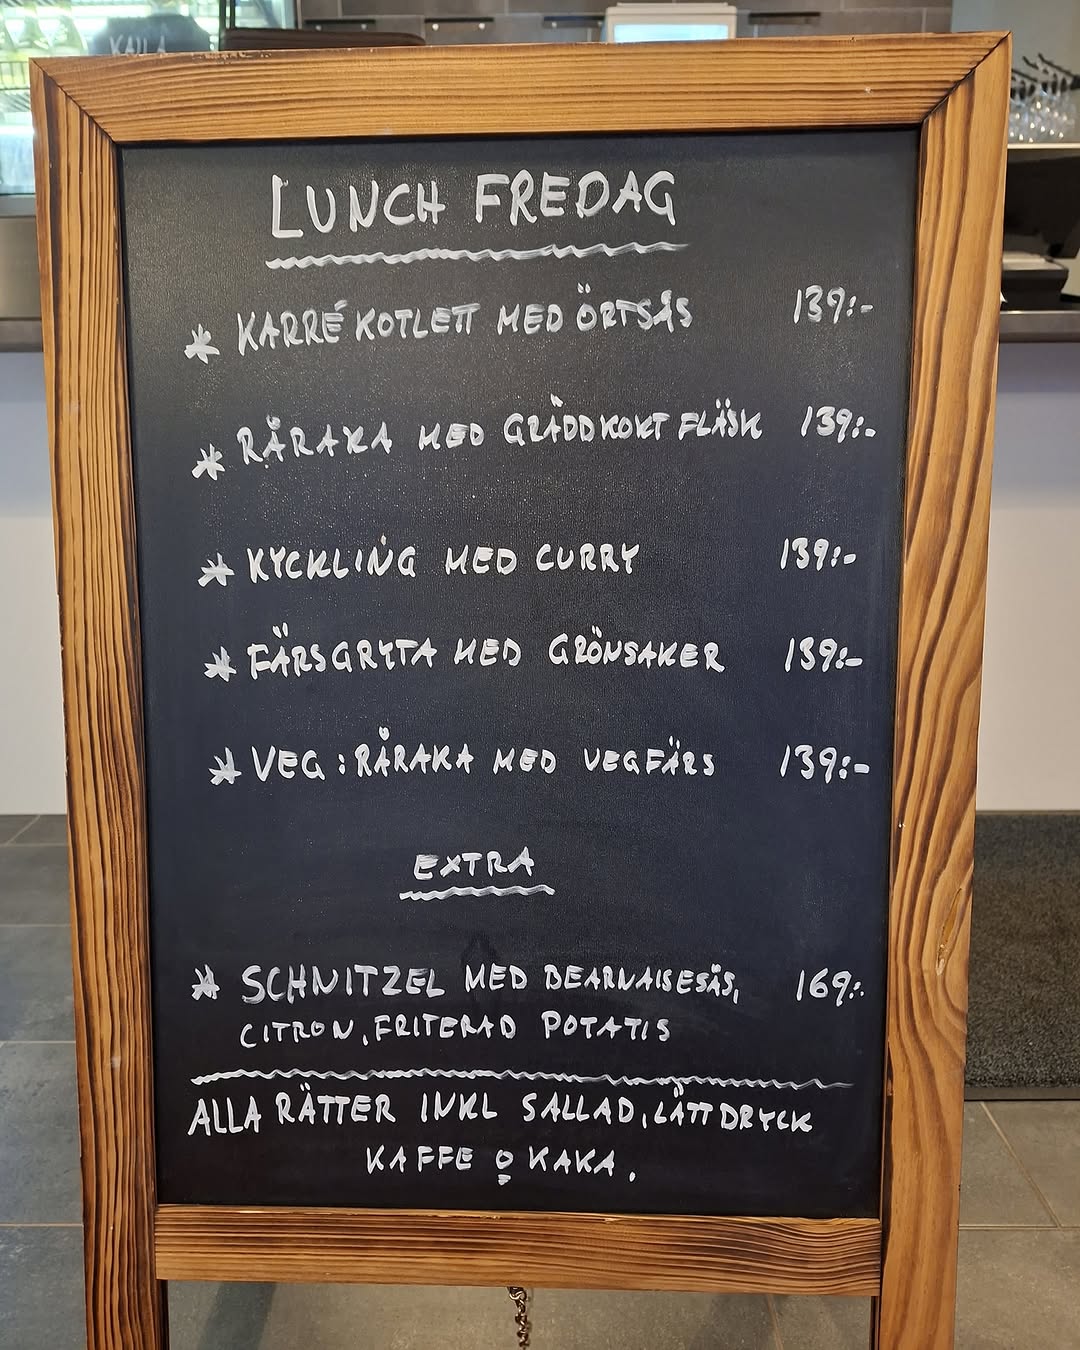 KALLA
LUNCH FREDAG
* KARRÉ KOTLETT MED ÖRTSÅS 139:-
* RÅRAKA MED GRÄDDKOKT FLÄSK 139:-
* KYCKLING MED CURRY 139:-
* FÄRSGRYTA MED GRÖNSAKER 139:-
* VEG: RÅRAKA MED VEGFÄRS 139:-
EXTRA
* SCHNITZEL MED BEARNAISESÅS, 169:-
CITRON, FRITERAD POTATIS
ALLA RÄTTER INKL SALLAD, LÄTTDRYCK
KAFFE o KAKA.